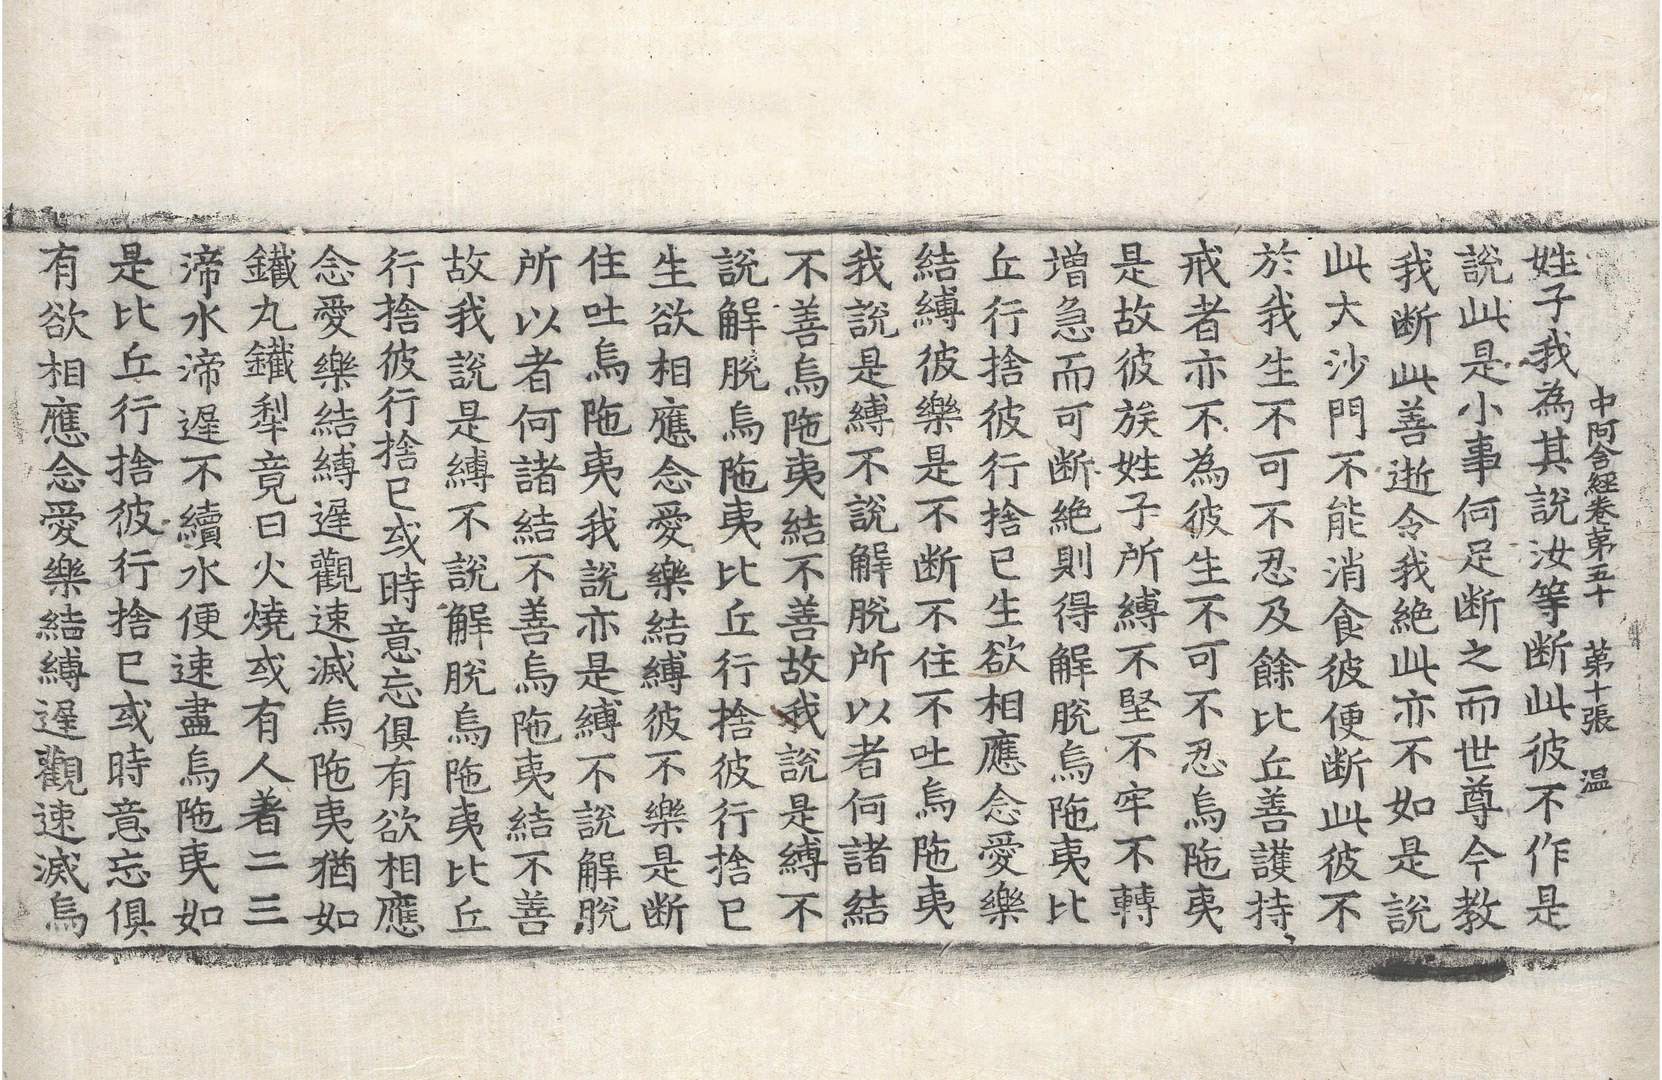 中阿含経卷第五十 第十張 温
姓子我為其說汝等断此彼不作是
說此是小事何足断之而世尊今教
我断此善逝令我絶此亦不如是說
此大沙門不能消食彼便断此彼不
於我生不可不忍及餘比丘善護持
戒者亦不為彼生不可不忍烏陁夷
是故彼族姓子所縛不堅不牢不轉
増急而可断絶則得解脫烏陁夷比
丘行捨彼行捨已生欲相應念愛樂
結縛彼樂是不断不住不吐烏陁夷
我說是縛不說解脫所以者何諸結
不善烏陁夷結不善故我說是縛不
說解脫烏陁夷比丘行捨彼行捨已
生欲相應念愛樂結縛彼不樂是断
住吐烏陁夷我說亦是縛不說解脫
所以者何諸結不善烏陁夷結不善
故我說是縛不說解脫烏陁夷比丘
行捨彼行捨已或時意忘俱有欲相應
念愛樂結縛遲觀速滅烏陁夷猶如
鐵丸鐵犁竟日火燒或有人著二三
渧水渧遲不續水便速盡烏陁夷如
是比丘行捨彼行捨已或時意忘俱
有欲相應念愛樂結縛遲觀速滅烏